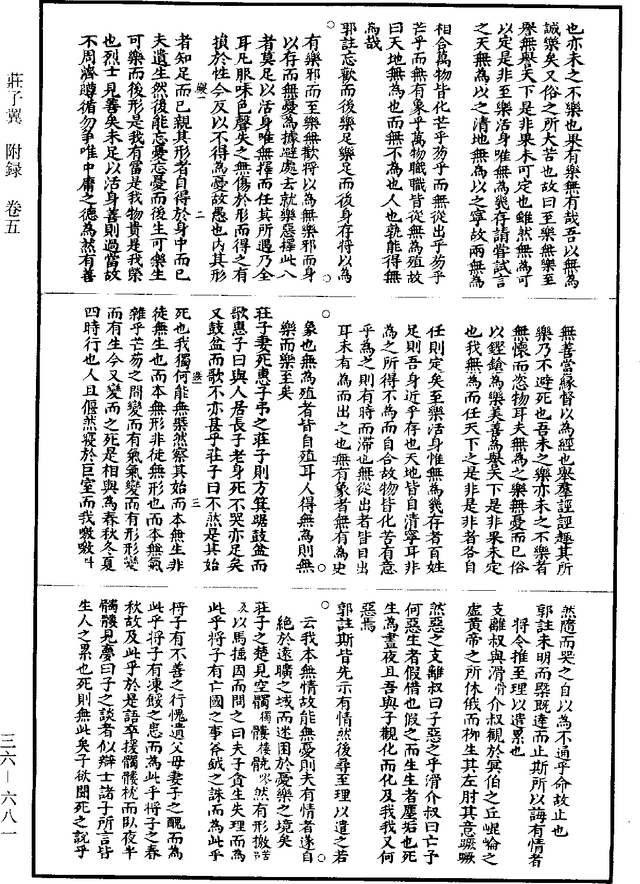 也亦未之不樂也果有樂無有哉吾以無為
誠樂矣又俗之所大苦也故曰至樂無樂至
譽無譽天下是非果未可定也雖然無為可
以定是非至樂活身唯無為幾存請嘗試言
之天無為以之清地無為以之寧故兩無為
相合萬物皆化芒乎芴乎而無從出乎芴乎
芒乎而無有象乎萬物職職皆從無為殖故
曰天地無為也而無不為也人也孰能得無
為哉
郭註忘歡而後樂足樂足而後身存將以為
有樂邪而至樂無歡將以為無樂邪而身
以存而無憂為據避處去就樂惡擇此八
者莫足以活身唯無擇而任其所遇乃全
耳凡服味色聲失之無傷於形而得之有
損於性今反以不得為憂故愚也內其形
者知足而已親其形者自得於身中而已
夫遺生然後能忘憂忘憂而後生可樂生
可樂而後形是我有富是我物貴是我榮
也烈士見善矣未足以活身善則過當故
不周濟蹲循勿爭唯中庸之德為然有善
無善當緣督以為經也舉羣誙誙趣其所
樂乃不避死也吾未之樂亦未之不樂者
無懷而恣物耳夫無為之樂無憂而已俗
以鏗鎗為樂美善為譽天下是非果未定
也我無為而任天下之是非是非者各自
任則定矣至樂活身惟無為幾存者百姓
足則吾身近乎存也天地皆自清寧耳非
為之所得不為而自合故物皆化若有意
乎為之則有時而滯也無從出者皆目出
耳未有為而出之也無有象者無有為史
象也無為殖者皆自殖耳人得無為則無
樂而樂至矣
莊子妻死惠子弔之莊子則方箕踞鼓盆而
歌惠子曰與人居長子老身死不哭亦足矣
又鼓盆而歌不亦甚乎莊子曰不然是其始
死也我獨何能無槩然察其始而本無生非
徒無生也而本無形非徒無形也而本無氣
雜乎芒芴之間變而有氣氣變而有形形變
而有生今又變而之死是相與為春秋冬夏
四時行也人且偃然寢於巨室而我噭噭
然隨而哭之自以為不通乎命故止也
郭註未明而槩既達而止斯所以誨有情者
將令推至理以遣累也
支離叔與滑介叔觀於冥伯之丘崐崘之
虛黃帝之所休俄而柳生其左肘其意蹶蹶
然惡之支離叔曰子惡之乎滑介叔曰亡予
何惡生者假借也假之而生生者塵垢也死
生為晝夜且吾與子觀化而化及我我又何
惡焉
郭註斯皆先示有情然後尋至理以遣之若
云我本無情故能無憂則夫有情者遂自
絕於遠曠之域而迷困於憂樂之境矣
莊子之楚見空髑髏髐然有形撽
以馬捶因而問之曰夫子貪生失理而為
此乎將子有亡國之事斧鉞之誅而為此乎
將子有不善之行愧遺父母妻子之醜而為
此乎將子有凍餒之患而為此乎將子之春
秋故及此乎於是語卒援髑髏枕而臥夜半
髑髏見夢曰子之談者似辯士諸子所言皆
生人之累也死則無此矣子欲聞死之說乎
莊子翼 附録 卷五
三六—六八一